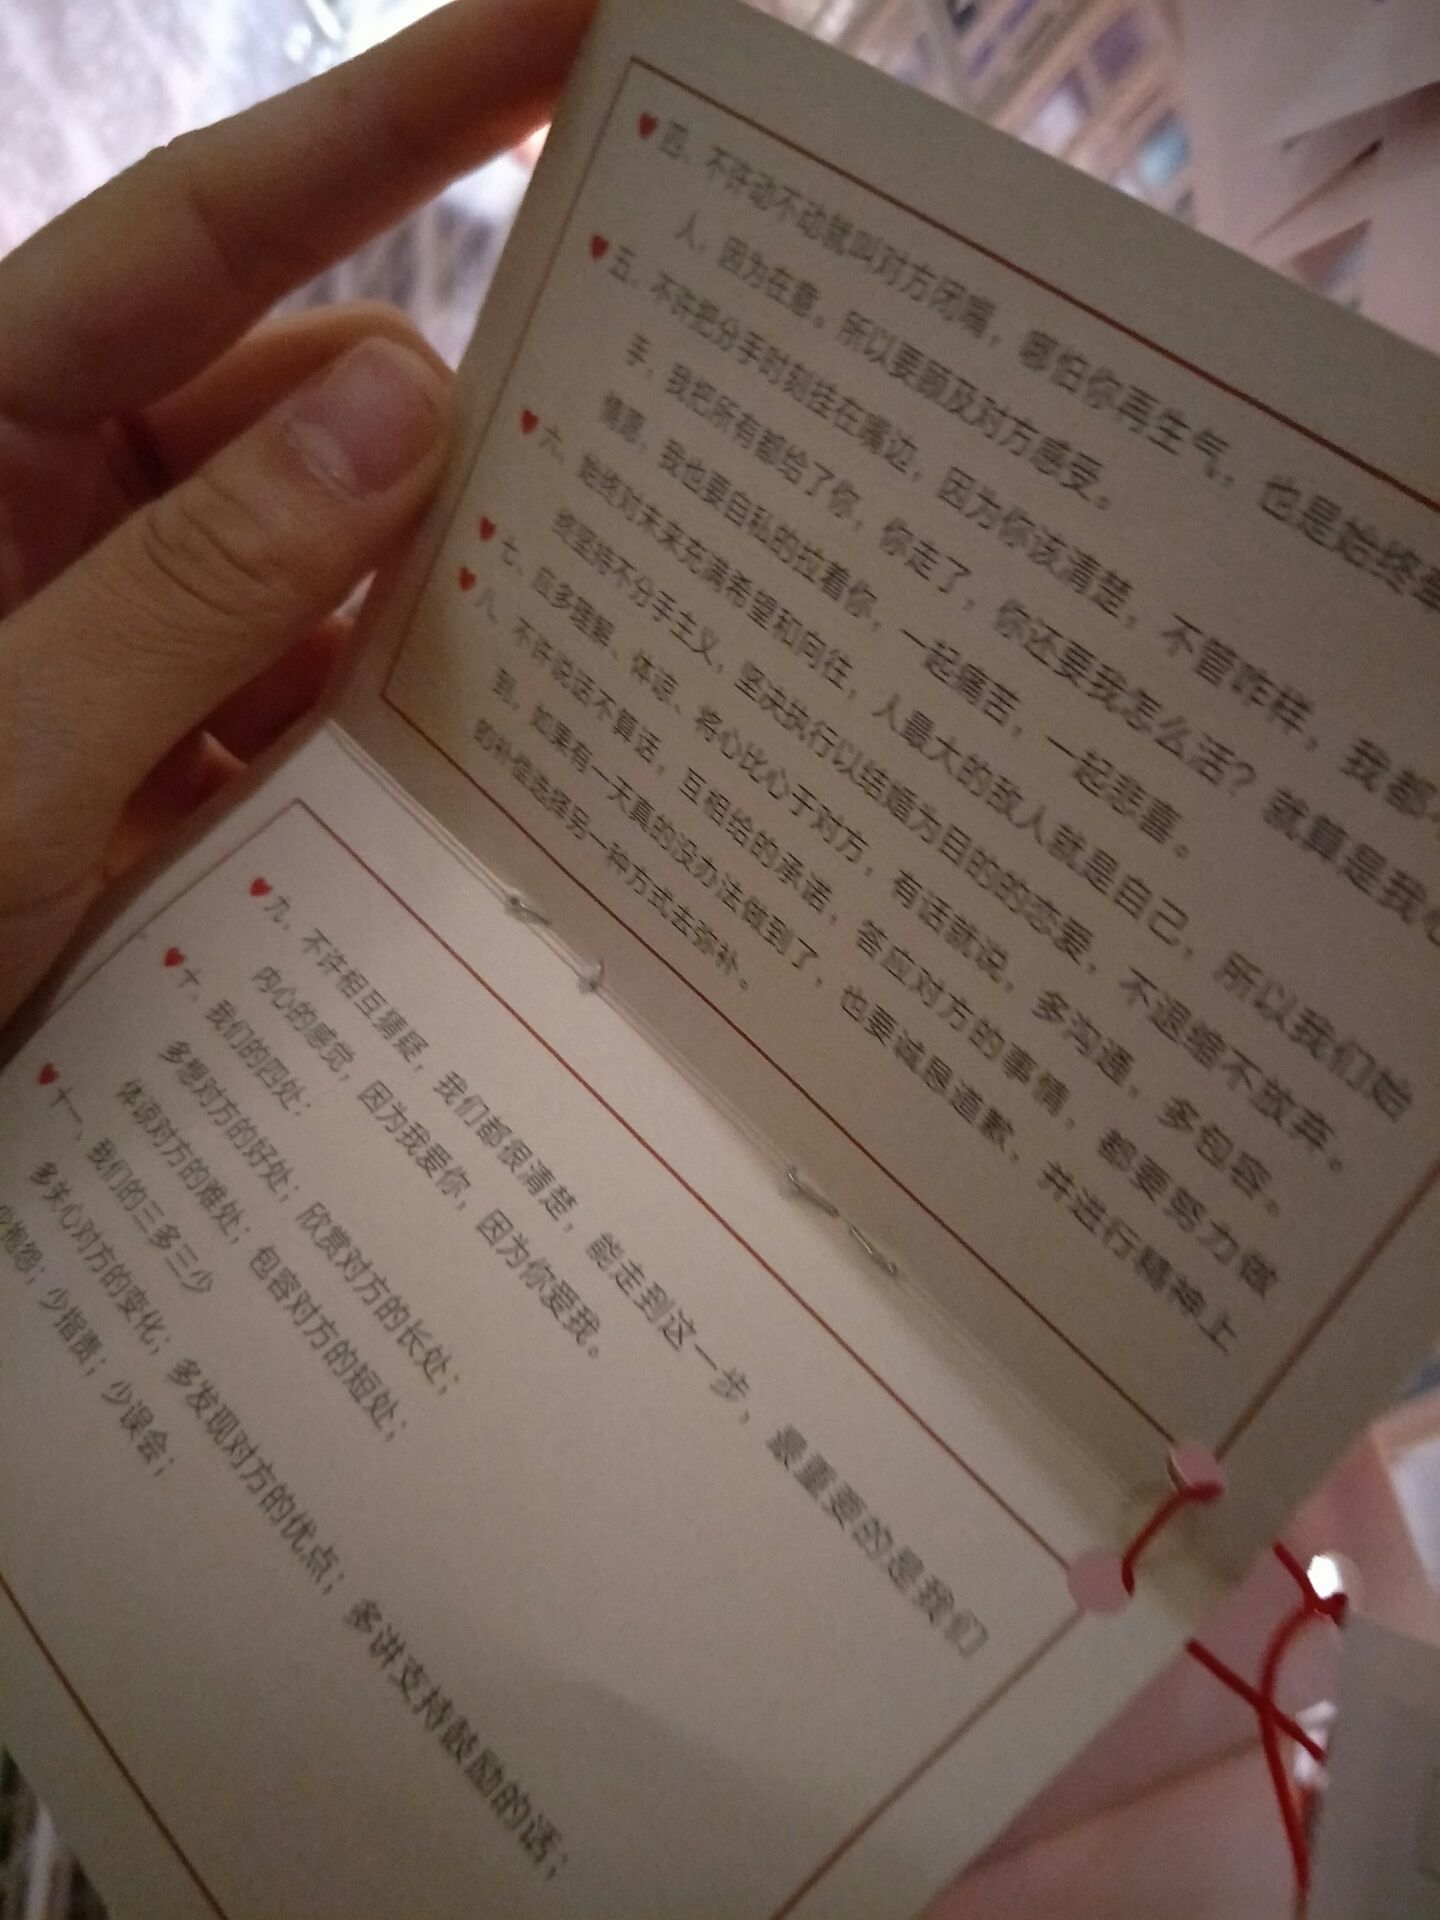 四、不许动不动就叫对方闭嘴，哪怕你再生气，也是始终
人，因为在意。所以要顾及对方感受。
五、不许把分手时刻挂在嘴边，因为你该清楚，不管咋样，我都
手，我把所有都给了你，你走了，你还要我怎么活？就算是我心
情愿，我也要自私的拉着你，一起痛苦，一起悲喜。
六、始终对未来充满希望和向往，人最大的敌人就是自己，所以我们始
终坚持不分手主义，坚决执行以结婚为目的的恋爱，不退缩不放弃。
七、应多理解、体谅、将心比心于对方，有话就说，多沟通，多包容。
八、不许说话不算话，互相给的承诺，答应对方的事情，都要努力做
到，如果有一天真的没办法做到了，也要诚恳道歉，并进行精神上
的补偿选择另一种方式去弥补。
九、不许相互猜疑，我们都很清楚，能走到这一步，最重要的是我们
内心的感觉，因为我爱你，因为你爱我。
十、我们的四处：
多想对方的好处；欣赏对方的长处；
体谅对方的难处；包容对方的短处；
十一、我们的三多三少
多关心对方的变化；多发现对方的优点；多讲支持鼓励的话；
少抱怨；少指责；少误会；